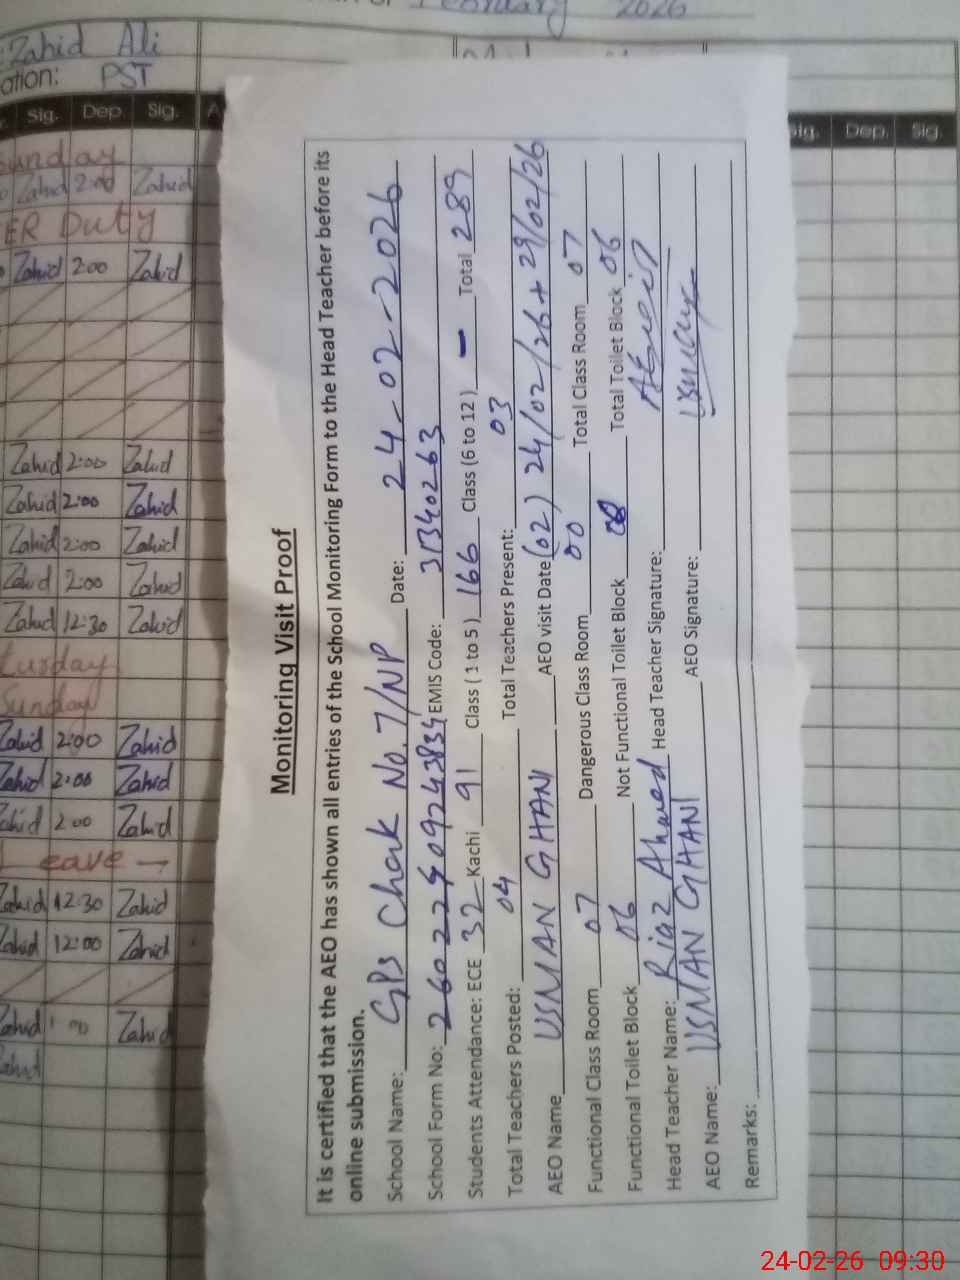 February 2026
Zahid Ali
ation: PST
Sig. Dep. Sig.
Sig. Dep. Sig.
Sunday
Zahid 2:00 Zahid
ER Duty
Zahid 2:00 Zahid
Zahid 2:00 Zahid
Zahid 2:00 Zahid
Zahid 2:00 Zahid
Zahid 2:00 Zahid
Zahid 12:30 Zahid
Sunday
Zahid 2:00 Zahid
Zahid 2:00 Zahid
Zahid 2:00 Zahid
Leave →
Zahid 12:30 Zahid
Zahid 12:00 Zahid
Zahid Zahid
Zahid
Monitoring Visit Proof
It is certified that the AEO has shown all entries of the School Monitoring Form to the Head Teacher before its
online submission.
School Name: GPS Chak No. 7/NP Date: 24-02-2026
School Form No: EMIS Code: 31340263
Students Attendance: ECE 32 Kachi 91 Class ( 1 to 5 ) 166 Class (6 to 12 ) - Total 289
Total Teachers Posted: 04 Total Teachers Present: 03
AEO Name USMAN GHANI AEO visit Date (02) 24/02/26 + 29/02/26
Functional Class Room 07 Dangerous Class Room 00 Total Class Room 07
Functional Toilet Block 06 Not Functional Toilet Block Total Toilet Block 06
Head Teacher Name: Riaz Ahmed Head Teacher Signature:
AEO Name: USMAN GHANI AEO Signature:
Remarks:
24-02-26 09:30